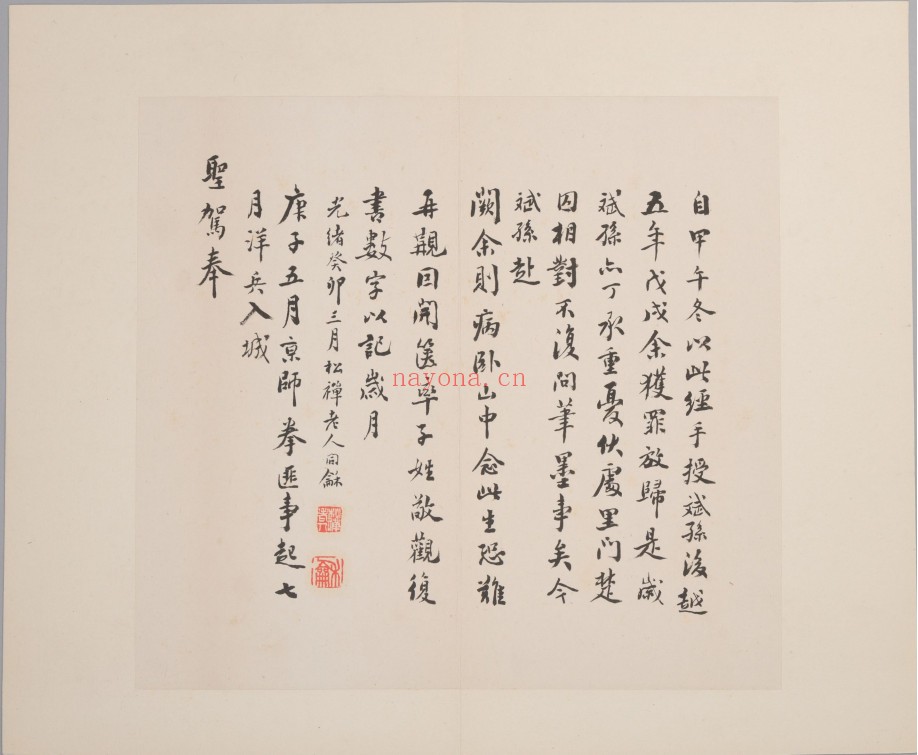 自甲午冬以此經手授斌孫後越
五年戊戌余獲罪放歸是歲
斌孫亦丁承重憂伏處里門楚
囚相對不復問筆墨事矣今
斌孫赴
闕余則病臥山中念此生恐難
再覯因開篋率子姓敬觀復
書數字以記歲月
光緒癸卯三月松禪老人同龢
庚子五月京師拳匪事起七
月洋兵入城
聖駕奉
nayona.cn